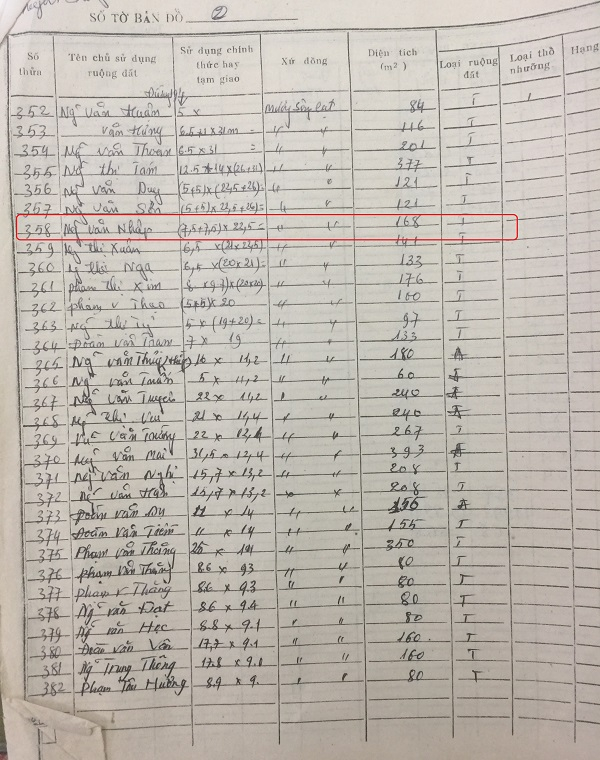 SỐ TỜ BẢN ĐỒ 2
Số thửa Tên chủ sử dụng ruộng đất Sử dụng chính thức hay tạm giao Xứ đồng Diện tích (m²) Loại ruộng đất Loại thổ nhưỡng Hạng
352 Ngô Văn Huân 5 x 84 T
353 Văn Hùng 6.5+1x31m = 〃 〃 116 T
354 Ngô Văn Thoan 6.5 x 31 = 〃 〃 201 T
355 Ngô Thị Tám 〃 〃 377 T
356 Ngô Văn Duy (5+5)x(23,5+24)= 〃 〃 121 T
357 Ngô Văn Sên (5+5)x23,5+24)= 〃 〃 121 T
358 Ngô Văn Nhập (7,5+7,5)x 22,5= 〃 〃 168 T
359 Thị Xuân 6,5 x(21x22,5) 〃 〃 141 T
360 Thị Nga 6,5 x(20x21) 〃 〃 133 T
361 phạm Thị Xim 〃 〃 176 T
362 phạm v Thao (5+5)x 20 〃 〃 100 T
363 Ngô Thị Tý 5 x (19+20)= 〃 〃 97 T
364 Đoàn Văn Tram 7 x 19 〃 〃 133 T
365 Ngô Văn Thủy 16 x 11,2 〃 〃 180
366 Ngô Văn Truân 5 x 11,2 〃 〃 60
367 Ngô Văn Tuyên 22 x 11,2 〃 〃 240
368 Thị Vui 21 x 11,4 〃 〃 240
369 Văn Trường 22 x 12,4 〃 〃 267 T
370 Ngô Văn Mai 31,5 x 12,4 〃 〃 393
371 Ngô Văn Nghi 15,7 x 13,2 〃 〃 208 T
372 Ngô Văn Hạn 15,7 x 13,2 〃 〃 208 T
373 Đoàn Văn Du 11 x 14 〃 〃
374 Đoàn Văn Tiềm 〃 x 14 〃 〃 155 T
375 Phạm Văn Thắng 25 x 14 〃 〃 350 T
376 phạm Văn 8.6 x 93 〃 〃 80 T
377 phạm v Thăng 8.6 x 9.3 〃 〃 80 T
378 Ngô Văn Đạt 8.6 x 9.4 〃 〃 80 T
379 Ngô Văn Học 8.8 x 9.1 〃 〃 80 T
380 Đoàn Văn Vân 17,7 x 9.1 〃 〃 160 T
381 Ngô Trung Thông 17.8 x 9.0 〃 〃 160 T
382 Phạm Thu Hường 8.9 x 9. 〃 〃 80 T